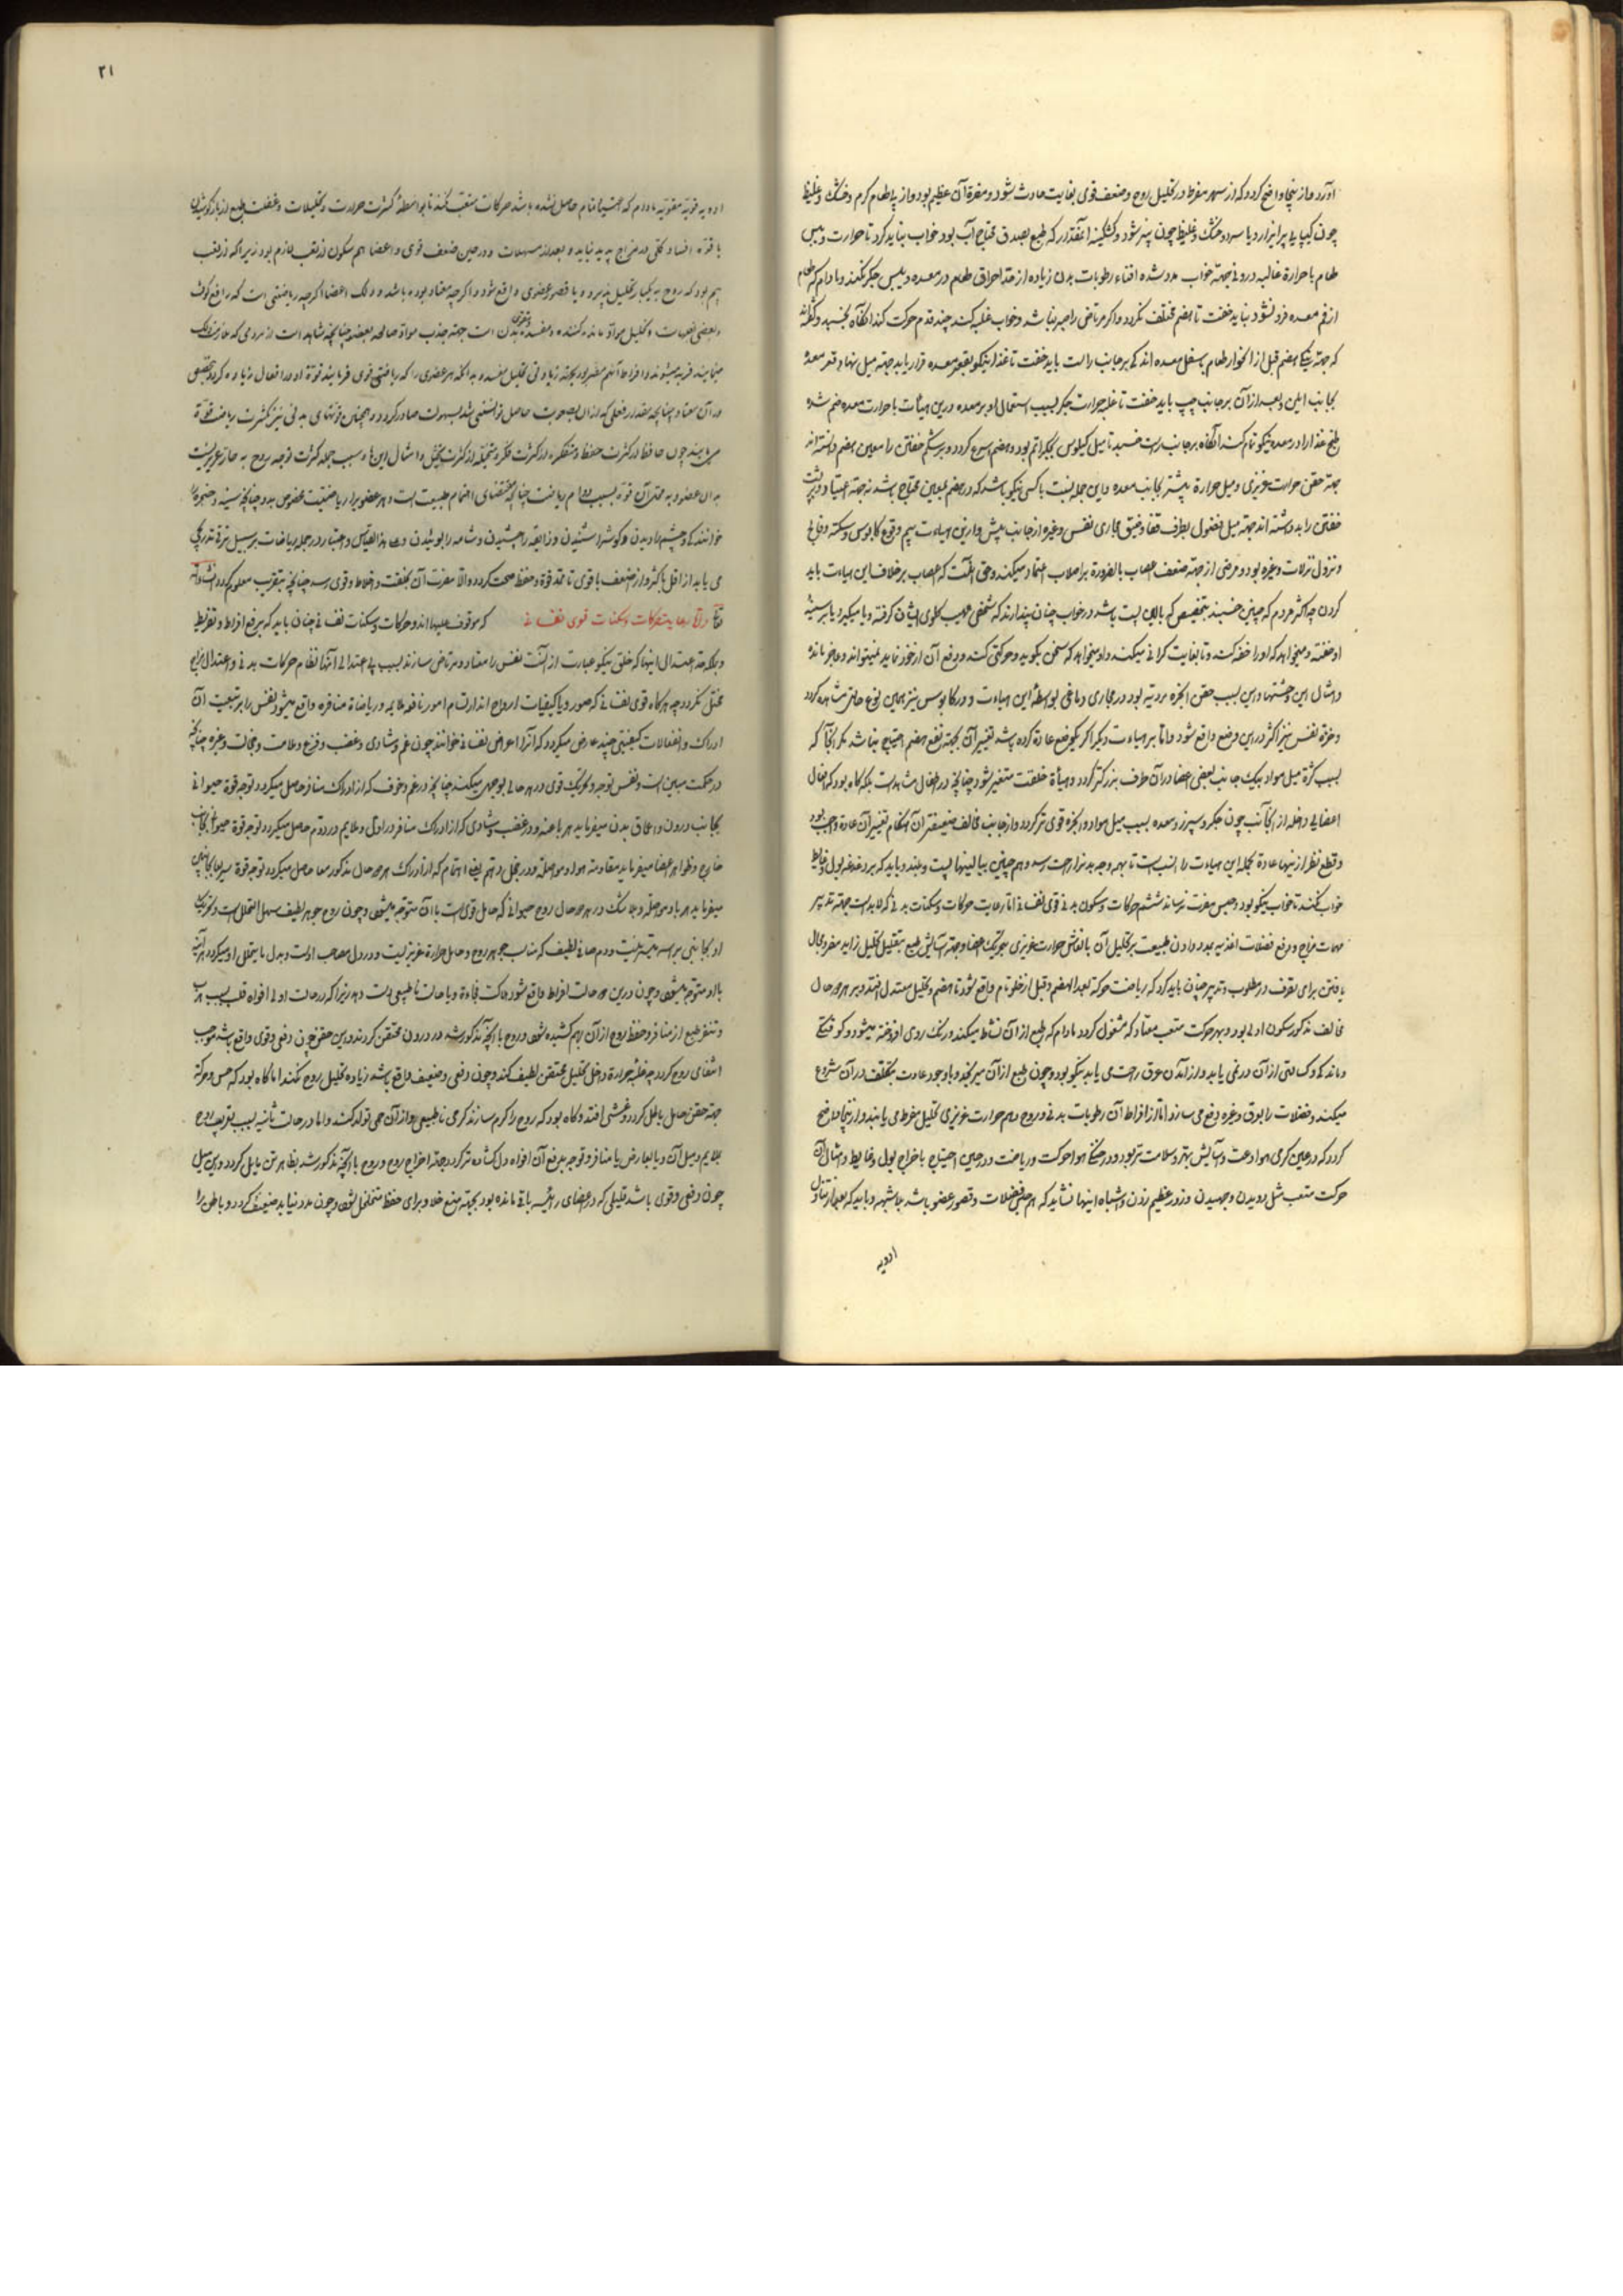 آورد و از ینجا واضح کردد که از سهر مفرط در تحلیل روح و ضعف قوی بغایت حادث شود و مضرة آن عظیم بود و از پی طعام کرم و خشک و غلیظ
چون کیپا یا پر ابزار و یا سرد و خشک و غلیظ چون پنیر شود و کشکینه آنقدر که طبع بصدق محتاج آب بود خواب نباید کرد تا حرارت و یبس
طعام با حرارة غالبه درونی جهة خواب مدد شده افناء رطوبات بدن زیاده از حد احراق طعام در معده و یبس جکر نکند و مادام که طعام
از فم معده فرو نشود نباید خفت تا هضم مختلف نکردد و اکر مرتاض را صبر نباشد و خواب غلبه کند چند قدم حرکت کند آنکاه بخسپد و
که جهة نیکی هضم قبل از انحدار طعام باسفل معده اندکی بر جانب راست باید خفت تا غذا نیکو بقعر معده قرار یابد جهة میل نهاد قعر معده
بجانب ایمن و بعد از آن بر جانب چپ باید خفت تا غلبه حرارت جکر بسبب اشتمال او بر معده درین هیأت با حرارت معده ضم شده
طبخ غذا را در معده نیکو تمام کند آنکاه بر جانب راست خسپد تا میل کیلوس بجکر اتم بود و هضم اسرع کردد و بر شکم خفتن را معین هضم دانسته اند
جهة حقن حرارت غریزی و میل حرارة بیشتر بجانب معده و این جمله نسبت با کسی نیکو باشد که در هضم بمعین محتاج باشد نه جهة اعتیاد و بر پشت
خفتن را بد دانسته اند جهة میل فضول بطرف قفا و ضیق مجاری نفس و غیره از جانب پیش و ازین هیاءت بیم وقوع کابوس و سکته و فالج
و نزول نزلات و غیره بود و مرضی از جهة ضعف اعصاب بالضرورة بر اصلاب اعتماد میکنند و حق آنست که اعصاب بر خلاف این هیاءت باید
کردن چه اکثر مردم که چنین خسپند بتخصیص که بالین پست باشد در خواب چنان پندارند که شخصی مهیب کلوی ایشان کرفته و یا میکیرد یا بر سینهٔ
او خفته و میخواهد که او را خفه کند و تا بغایت کرانی میکند و او میخواهد که سخن بکوید و حرکتی کند و دفع آن از خود نماید نمیتواند و عاجز مانده
و امثال این وحشتها و این بسبب حقن ابخرهٔ ردیه بود در مجاری دماغی بواسطهٔ این هیاءت و در کابوس نیز همین نوع حالتی مشاهده کردد
و خرّهٔ نفس نیز اکثر درین وضع واقع شود و امّا بر هیاءت دیکر اکر یکوضع عادة کرده باشد تغییر آن بجهة نفع هضم احتیاج نباشد مکر آنجا که
بسبب کثرة میل مواد بیک جانب بعضی اعضا در آن طرف بزرکتر کردد و هیأة خلقت متغیر شود چنانچه در اطفال مشاهدست بلکه کاه بود که افعال
اعضای داخله از آنجانب چون جکر و سپرز و معده بسبب میل مواد و ابخره قوی تر کردد و از جانب مخالف ضعیفتر آن هنکام تغییر آن عادة واجب بود
و قطع نظر ازینها عادة بجمله این هیاءت را انسب است تا بهمه وجه بدن را راحت رسد و هم چنین ببالینهای پست و بلند و باید که بر دغدغه بول و غایط
خواب نکنند تا خواب نیکو بود و حبس مضرت نرساند ششم حرکات و سکون بدنی قوی نفسانی امّا رعایت حرکات و سکنات بدنی که لابد است جهة تدبیر
مهمات مزاج و دفع فضلات اغذیه بمدد دادن طبیعت بر تحلیل آن بانعاش حرارت غریزی بتحریک اعضا و جهة آسایش طبع بتقلیل تحلیل زاید مفرد مجال
یافتن برای تصرف در مطلوب و تدبیر چنان باید کرد که ریاضت حرکة بعد الهضم و قبل از خلو تام واقع شود تا هضم و تحلیل معتدل افتد و بر هر دو حال
مخالف مذکور سکون اولی بود و بهر حرکت متعب معتاد که مشغول کردد مادام که طبع از آن نشاط میکند و رنک روی افروخته میشود و کوفتکی
و ماندکی و کسالتی از آن در نمی یابد و از آمدن عرق راحت می یابد نیکو بود و چون طبع از آن سیر کند و با وجود عادت بتکلف در آن شروع
میکند و فضلات را بعرق و غیره دفع می سازد امّا از افراط آن رطوبات بدنی و روح و هم حرارت غریزی تحلیل مفرط می یابند و از ینجا واضح
کردد که در عین کرمی هوا دعت و آسایش بهتر و سلامت تر بود و در خنکی هوا حرکت و ریاضت و در حین احتیاج باخراج بول و غایط و امثال آن
حرکت متعب مثل دویدن و جهیدن و زور عظیم زدن و اشباه اینها نشاید که هم حبس فضلات و قصور عضو باشد بلاشبهه و باید که بعد از تناول
ادویه
۲۱
ادویه قویه مقویه مادام که هضم تمام حاصل نشده باشد حرکات متعب نکنند تا بواسطهٔ کثرت حرارت و تحلیلات و غفلت طبع از
یا قوّة افساد کلی در مزاج پدید نیاید و بعد از مسهلات و در حین ضعف قوی و اعضا هم سکون از تعب لازم بود زیرا که از تعب
بیم بود که روح به یکبار تحلیل پذیرد و یا قصور عضوی واقع شود و اکر چه معتاد بوده باشد و دلک اعضا اکر چه ریاضتی است که رافع
و بعضی تعبات و تحلیل موادّ مانده کننده و مفسدهٔ بدن است جهة جذب موادّ صالحه بعضو چنانچه مشاهد است از مردمی که
مینمایند فربه میشوند و افراط آنهم مضر بود بجهة زیادتی تحلیل مفسد و بدانکه هر عضوی را که ریاضتی قوی فرمایند قوّة او در افعال زیاده کردد بتخصیص
در آن معتاد چنانچه بقدر فعلی که از آن بصعوبت حاصل توانستی شد بسهولت صادر کردد و همچنان قوتهای بدنی نیز بکثرت ریاضت قوّة
می یابند چون حافظه از کثرت حفظ و متفکره از کثرت فکر و متخیله از کثرت تخیل و امثال این و سبب جمله کثرت توجه روح به حار غریزیست
بدان عضو و به محل آن قوّة بسبب دوام ریاضت چنانچه مقتضای اهتمام طبیعت است و هر عضویرا ریاضتیست مخصوص بدو چنانچه سینه و حنجره را
خوانندکی و چشم را دیدن و کوش را شنیدن و ذایقه را چشیدن و شامه را بوئیدن و علی هذا القیاس و اعتبار در جمله ریاضات بر سبیل ترقی تدریجی
می یابد از اقل باکثر و از اضعف باقوی تا ممد قوّة و حفظ صحت کردد و الا مضرت آن بخفت و اخلاط و قوی رسد چنانچه بتقرب معلوم کردد
و امّا رعایت حرکات و سکنات قوی نفسانی که موقوف علیها اند و حرکات و سکنات نفسانی چنان باید که برفع افراط و تفریط
و بملکه حد اعتدال اینها که خلق نیکو عبارت از آنست نفس را معتاد و مرتاض سازند بسبب بی اعتدالی آنها نظام حرکات بدنی و اعتدال مزاج
مختل نکردد چه هرکاه قوی نفسانی که صور و یا کیفیات ارواح اند ارتسام امور نافعه ملایمه و ریاضاة منافره واقع میشود نفس را بر تبعیت آن
ادراک و انفعالات کیفیتی چند عارض میکردد که آنرا اعراض نفسانی خوانند چون غم و شادی و غضب و فزع و ملامت و خجالت و غیره چنانچه
در حکمت مبین است و نفس توجه و تحریک قوی در هر حالی بوجهی میکند چنانچه در غم و خوف که از ادراک منافر حاصل میکردد توجه قوة حیوانی
بجانب درون و اعماق بدن میفرماید هربا عنه و در غضب و شادی که از ادراک منافر در اوّل و ملایم در دوّم حاصل میکردد توجه قوة حیوانی بجانب
خارج و ظواهر اعضا میفرماید مقاومة اهوا و مواصلة و در خجل و هم یعنی اهتمام که از ادراک هر دو حال مذکور معا حاصل میکردد توجه قوة بهر دو جانب
میفرماید هربا و مواصلة و بلاشک در هر دو حال روح حیوانی که حامل قوی است با آن متوجه میشود و چون روح جوهر لطیف سهل التحلل است و تحریک
او بجانبی بر اسرهٔ متیسر نیست و دم صافی لطیف که مناسب جوهر روح و حامل حرارة غریزیست و در دل مصاحب اوست و بدل ما یتحلل او میکردد هر آینه
با او متوجه میشود و چون درین دو حالت افراط واقع شود هلاکت فجاءة و یا حالت ناطبیعی دست دهد زیرا که در حالت اولی افواه قلب بسبب هرب
و تنفر طبع از منافر و حفظ روح از آن بهم کشیده شود و روح با آنچه مذکور شد در درون محتقن کردند و این حقن چون دفعی و قوی واقع باشد موجب
انطفای روح کردد چه غلبهٔ حرارة داخل تحلیل محتقن لطیف کند و چون دفعی و ضعیف واقع باشد زیاده تحلیل روح نکند اما کاه بود که حس و حرکة
جهة حقن حامل باطل کردد و غشی افتد و کاه بود که روح را کرم سازند کرمی ناطبیعی و از آن حمی تولد کند و امّا در حالت ثانیه بسبب تعریف روح
بملایم و میل آن و یا بعارض یا منافر و توجه بدفع آن افواه دل کشاده تر کردد جهة اخراج روح و روح با آنچه مذکور شد بظاهر تن مایل کردد و این میل
چون دفعی و قوی باشد قلیلی که در اعضای رئیسه باقی مانده بود بجهة منع خلا و برای حفظ متخلخل شود و چون مدد نیابد ضعیف کردد و باطن را